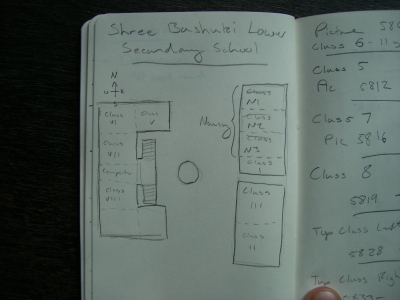 Shree Bashuki Lower
Secondary School
N
S
Class
VI
Class
V
Class
VII
Computer
Class
VIII
Class
N1
Class
N2
Class
N3
Class
I
Class
III
Class
II
Picture 58
Class 6 - 11
Class 5
5812
Class 7
Pic 5816
Class 8
5819
Top Class Left
5828
Top Class Righ